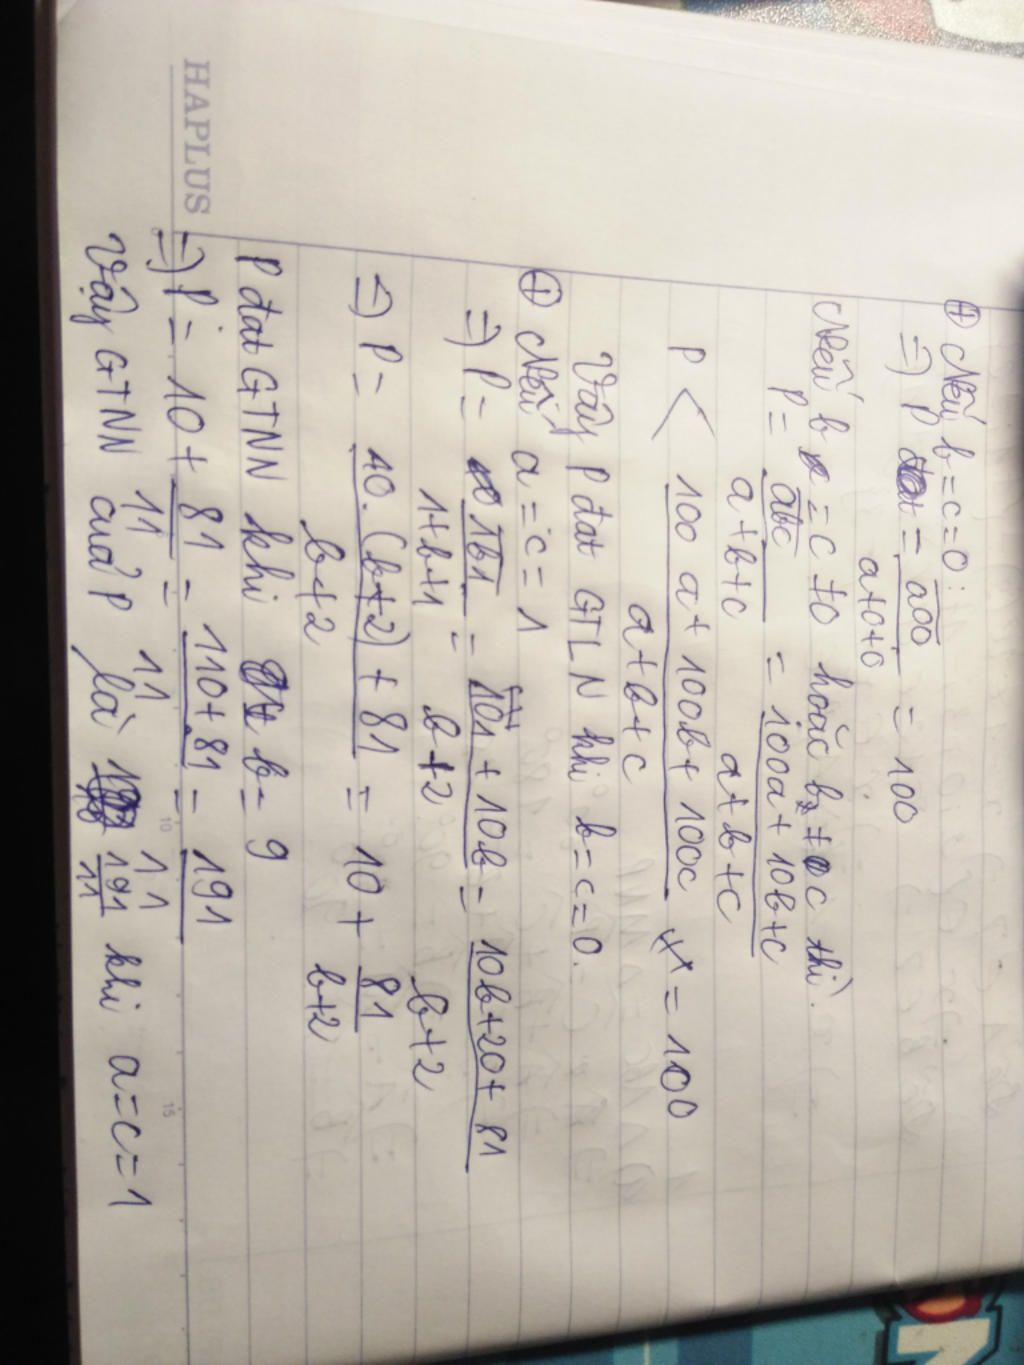 HAPLUS
+ Nếu b=c=0:
=) P = a00 / a+0+0 = 100
Nếu b = c ≠ 0 hoặc b ≠ c thì.
P = abc / a+b+c = 100a + 10b+c / a+b+c
P < 100a + 100b + 100c / a+b+c = 100
Vậy P đạt GTLN khi b=c=0.
+ Nếu a=c=1
=) P = 1b1 / 1+b+1 = 101 + 10b / b+2 = 10b+20+81 / b+2
=) P = 10.(b+2) + 81 / b+2 = 10 + 81 / b+2
P đạt GTNN khi b=9
=) P = 10 + 81 / 11 = 110+81 / 11 = 191 / 11
Vậy GTNN của P là 191 / 11 khi a=c=1
10
15